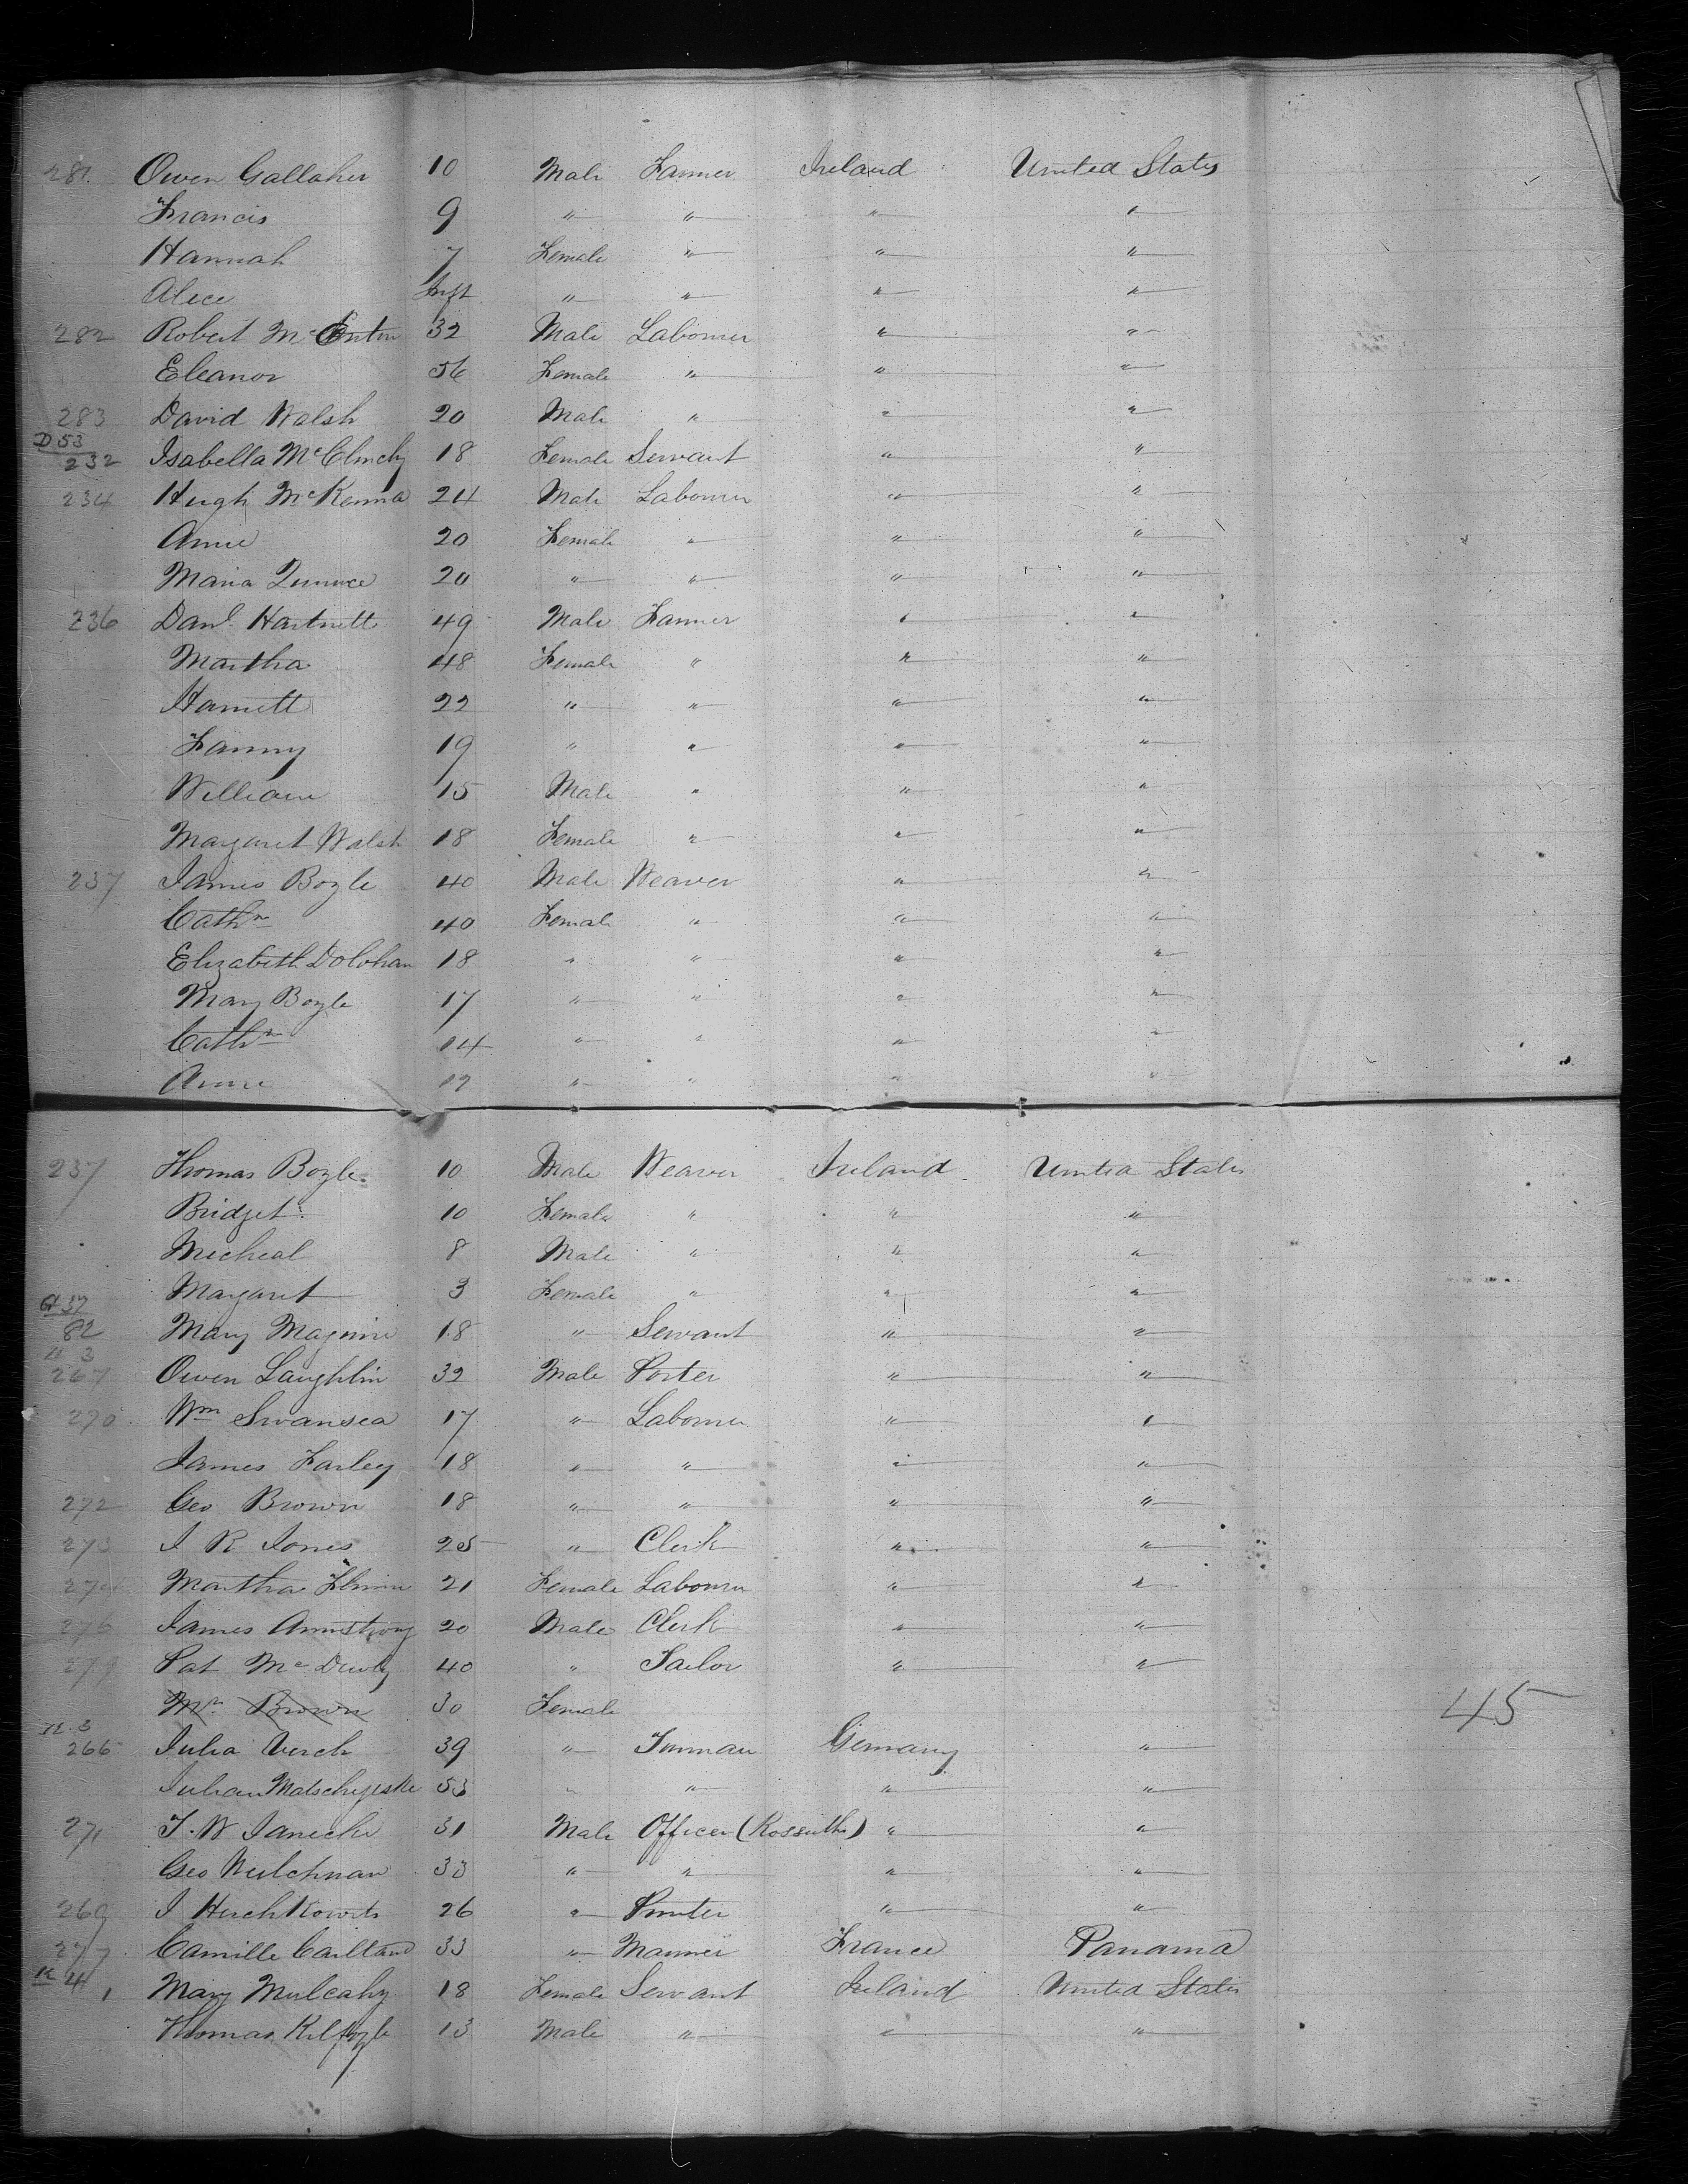 281 Owen Gallaher 10 Male Farmer Ireland United States
Francis 9 " " " "
Hannah 7 Female " " "
Alice Inft " " " "
282 Robert McEntire 32 Male Labourer " "
Eleanor 56 Female " " "
283 David Walsh 20 Male " " "
D 53
232 Isabella McClinchy 18 Female Servant " "
234 Hugh McKenna 24 Male Labourer " "
Anne 20 Female " " "
Maria 20 " " " "
236 Danl. Hartnett 49 Male Farmer " "
Martha 48 Female " " "
Harriett 22 " " " "
Fanny 19 " " " "
William 15 Male " " "
Margaret Walsh 18 Female " " "
237 James Boyle 40 Male Weaver " "
Cathn 40 Female " " "
Elizabeth Dolohan 18 " " " "
Mary Boyle 17 " " " "
Cathn 14 " " " "
Anne 12 " " " "
237 Thomas Boyle 10 Male Weaver Ireland United States
Bridget 10 Female " " "
Micheal 8 Male " " "
Margaret 3 Female " " "
G 37
82 Mary Maguire 18 " Servant " "
H 3
267 Owen Laughlin 32 Male Porter " "
270 Wm Swansea 17 " Labourer " "
James Farley 18 " " " "
272 Geo Brown 18 " " " "
273 J R Jones 25 " Clerk " "
274 Martha 21 Female Labourer " "
276 James Armstrong 20 Male Clerk " "
279 Pat Mc 40 " Tailor " "
Mrs Brown 30 Female
45
H. 3
266 Julia Verch 39 " Germany "
Julian 53 " " " "
271 J. W Janecke 31 Male Officer (Kossuth) " "
Geo 33 " " " "
269 J Hirchkowits 26 " Printer " "
277 Camille Cailland 33 " Mariner France Panama
K 4
1 Mary Mulcahy 18 Female Servant Ireland United States
Thomas Kilfoyle 13 Male " " "